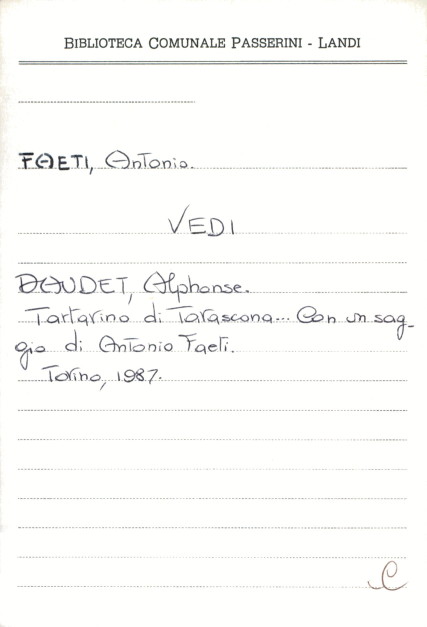 BIBLIOTECA COMUNALE PASSERINI - LANDI
FAETI, Antonio.
VEDI
DAUDET, Alphonse.
Tartarino di Tarascona... Con un sag-
gio di Antonio Faeti.
Torino, 1987.
C